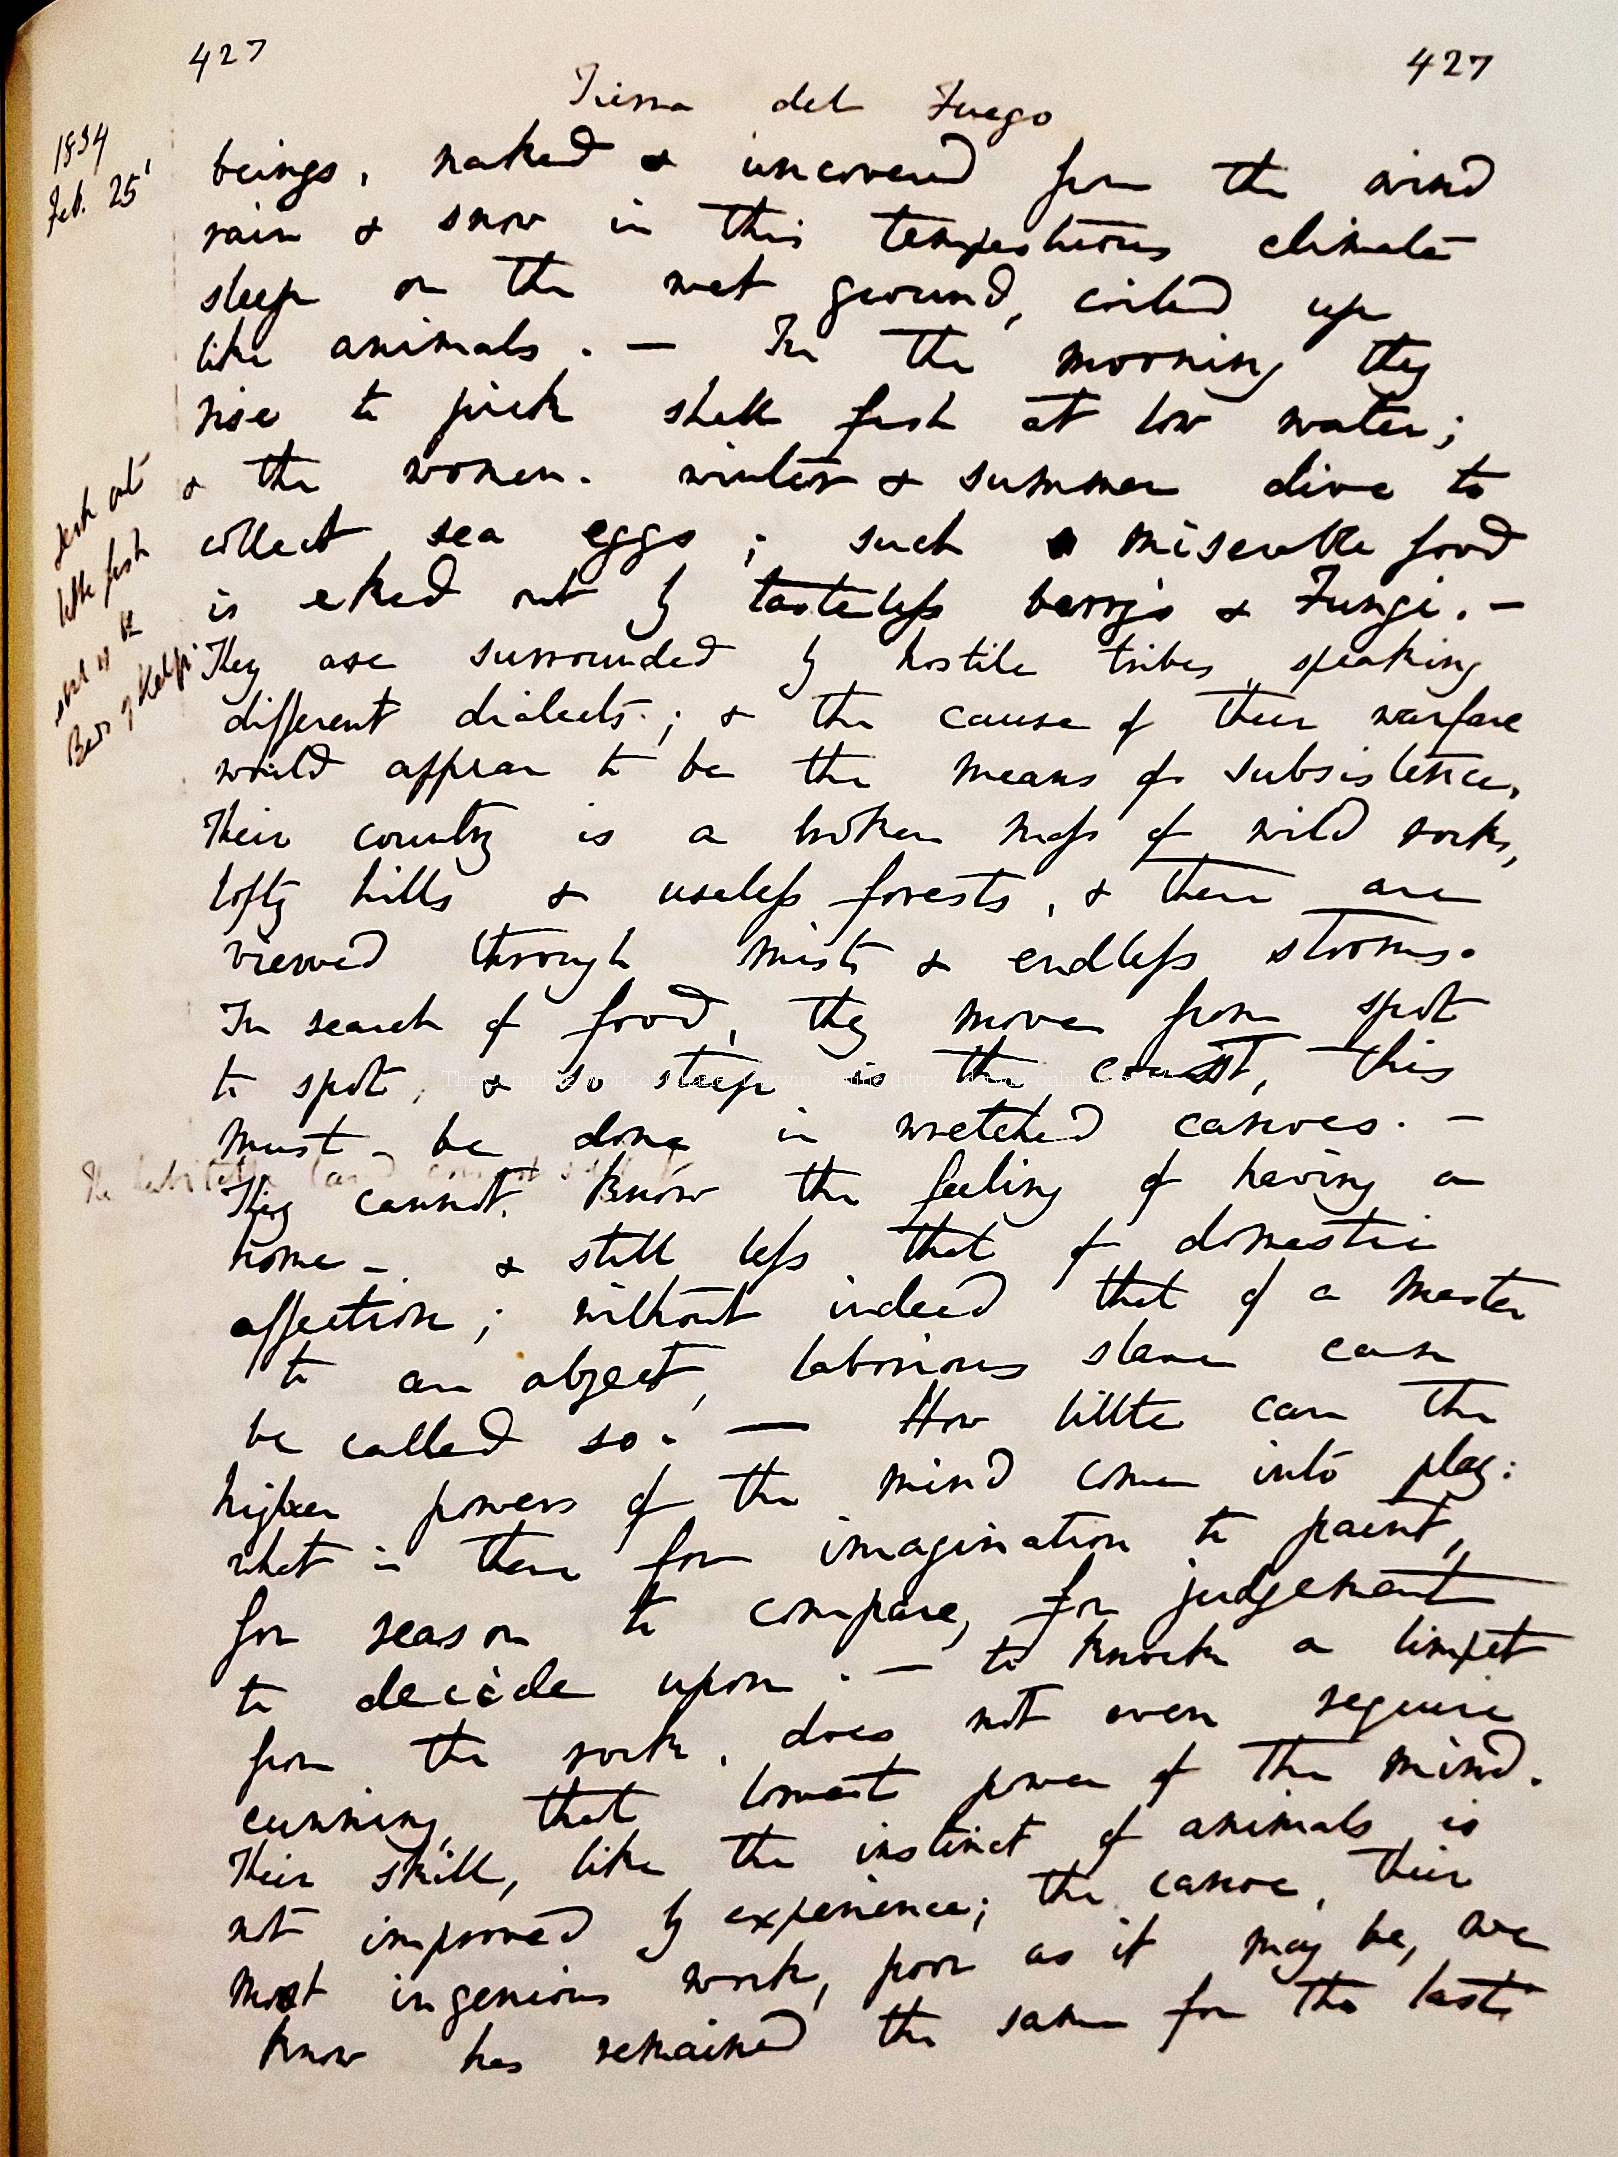 427
427
Tierra del Fuego
1834
Feb. 25th
beings, naked & uncovered from the wind
rain & snow in this tempestuous climate
sleep on the wet ground, coiled up
like animals. — In the morning they
rise to pick shell fish at low water;
& the women. winter & summer dive to
collect sea eggs; such miserable food
is eked out by tasteless berrys & Fungi. —
little fish
Beds of Kelp:
They are surrounded by hostile tribes speaking
different dialects; & the cause of their warfare
would appear to be the means of subsistence.
Their country is a broken mass of wild rocks,
lofty hills & useless forests, & these are
viewed through mists & endless storms.
In search of food, they move from spot
to spot, & so steep is the coast, this
must be done in wretched canoes. —
The habitable land
They cannot know the feeling of having a
home — & still less that of domestic
affection; without indeed that of a master
to an abject, laborious slave can
be called so. — How little can the
higher powers of the mind come into play:
what is there for imagination to paint,
for reason to compare, for judgement
to decide upon. — to knock a limpet
from the rock, does not even require
cunning, that lowest power of the mind.
Their skill, like the instinct of animals is
not improved by experience; the canoe, their
most ingenious work, poor as it may be, we
know has remained the same for the last